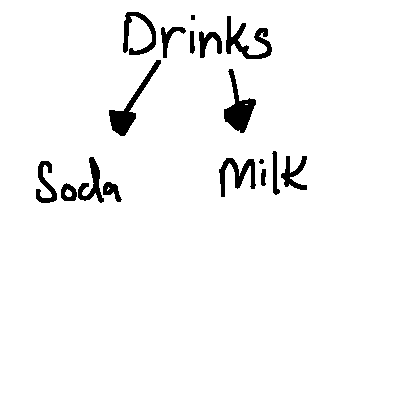 Drinks
Soda Milk